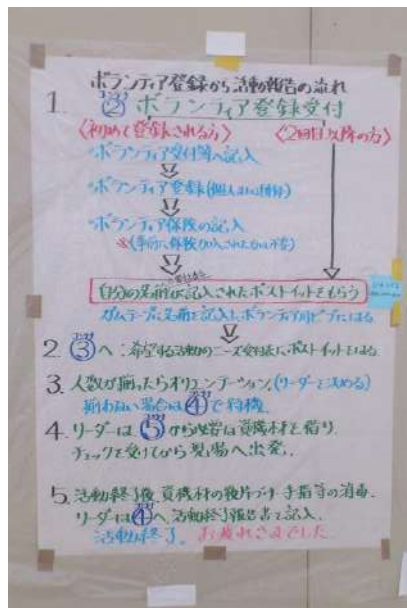 ボランティア登録から活動報告の流れ
1. ② ボランティア登録受付
〈初めて登録される方〉 〈2回目以降の方〉
・ボランティア受付簿へ記入
・ボランティア登録(個人または団体)
・ボランティア保険の記入
※(事前に保険加入された方は不要)
自分の名前が記入されたポストイットをもらう
ガムテープに名前を記入しボランティアビブにはる
2. ③へ:希望する活動のニーズ受付票にポストイットをはる
3. 人数が揃ったらオリエンテーション。(リーダーを決める)
揃わない場合は④で待機
4. リーダーは⑤から必要な資機材を借り
チェックを受けてから現場へ出発。
5. 活動終了後、資機材の後片づけ・手指等の消毒。
リーダーは④へ、活動終了報告書を記入。
活動終了。お疲れさまでした